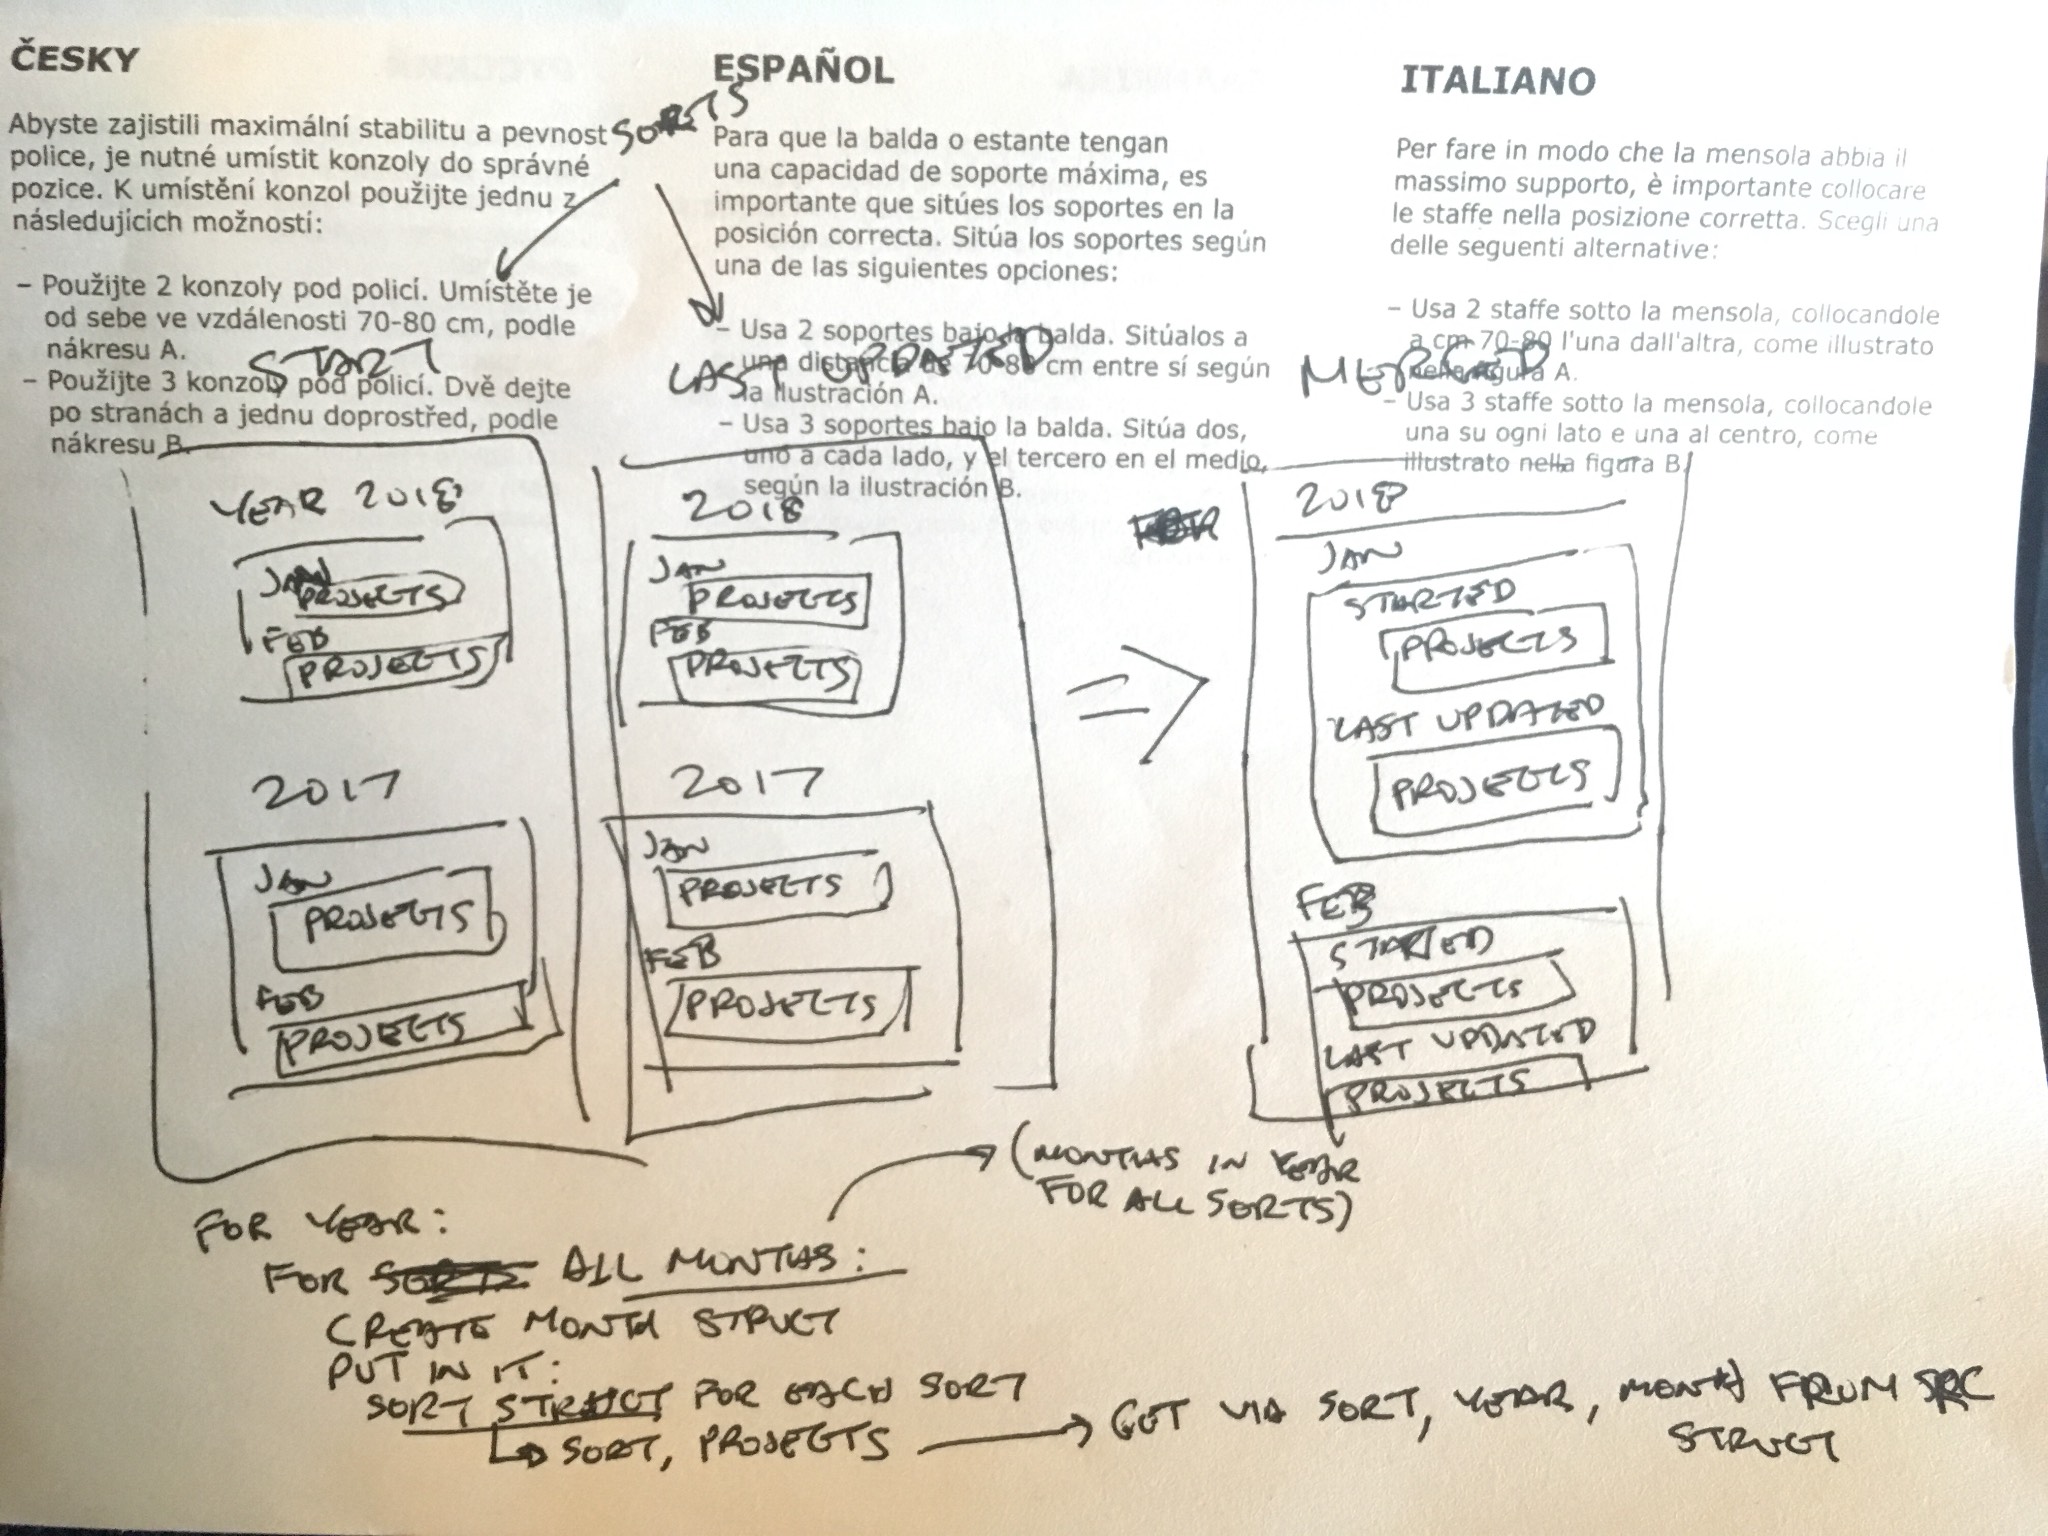 ČESKY
Abyste zajistili maximální stabilitu a pevnost
police, je nutné umístit konzoly do správné
pozice. K umístění konzol použijte jednu z
následujících možností:
– Použijte 2 konzoly pod policí. Umístěte je
od sebe ve vzdálenosti 70-80 cm, podle
nákresu A.
– Použijte 3 konzoly pod policí. Dvě dejte
po stranách a jednu doprostřed, podle
nákresu B.
ESPAÑOL
Para que la balda o estante tengan
una capacidad de soporte máxima, es
importante que sitúes los soportes en la
posición correcta. Sitúa los soportes según
una de las siguientes opciones:
– Usa 2 soportes bajo la balda. Sitúalos a
una distancia de 70-80 cm entre sí según
la ilustración A.
– Usa 3 soportes bajo la balda. Sitúa dos,
uno a cada lado, y el tercero en el medio,
según la ilustración B.
ITALIANO
Per fare in modo che la mensola abbia il
massimo supporto, è importante collocare
le staffe nella posizione corretta. Scegli una
delle seguenti alternative:
– Usa 2 staffe sotto la mensola, collocandole
a cm 70-80 l'una dall'altra, come illustrato
nella figura A.
– Usa 3 staffe sotto la mensola, collocandole
una su ogni lato e una al centro, come
illustrato nella figura B.
SORTS
START
YEAR 2018
JAN
PROJECTS
FEB
PROJECTS
2017
JAN
PROJECTS
FEB
PROJECTS
LAST UPDATED
2018
JAN
PROJECTS
FEB
PROJECTS
2017
JAN
PROJECTS
FEB
PROJECTS
=>
MERGED
2018
JAN
STARTED
PROJECTS
LAST UPDATED
PROJECTS
FEB
STARTED
PROJECTS
LAST UPDATED
PROJECTS
(MONTHS IN YEAR
FOR ALL SORTS)
FOR YEAR:
FOR ALL MONTHS:
CREATE MONTH STRUCT
PUT IN IT:
SORT STRUCT FOR EACH SORT
SORT, PROJECTS
GET VIA SORT, YEAR, MONTH FROM SRC
STRUCT